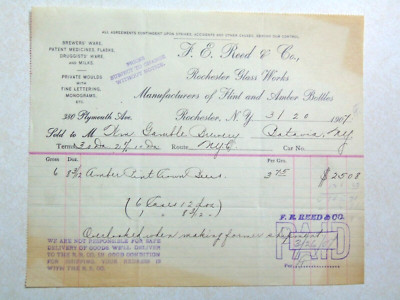 ALL AGREEMENTS CONTINGENT UPON STRIKES, ACCIDENTS AND OTHER CAUSES, BEYOND OUR CONTROL.
BREWERS' WARE,
PATENT MEDICINES, FLASKS,
DRUGGISTS' WARE,
AND MILKS.
PRIVATE MOULDS
WITH
FINE LETTERING,
MONOGRAMS,
ETC.
PRICES
SUBJECT TO CHANGE
WITHOUT NOTICE.
F. E. Reed & Co.,
Rochester Glass Works
Manufacturers of Flint and Amber Bottles
380 Plymouth Ave.
Rochester, N. Y. 3/20 1907
Sold to M The Gamble Brewery Batavia, N.Y.
Terms 30 ds 2% 10 ds Route NYC Car No.
Gross Doz. Per Gro.
6 8 2/12 Amber Pint Crown Beers 3 75 $25 08
6 Cases 12 doz
1 " 8 2/12 "
Overlooked when making former shipment
F. E. REED & CO.
PAID
WE ARE NOT RESPONSIBLE FOR SAFE
DELIVERY OF GOODS WHEN DELIVERED
TO THE R. R. CO. IN GOOD CONDITION